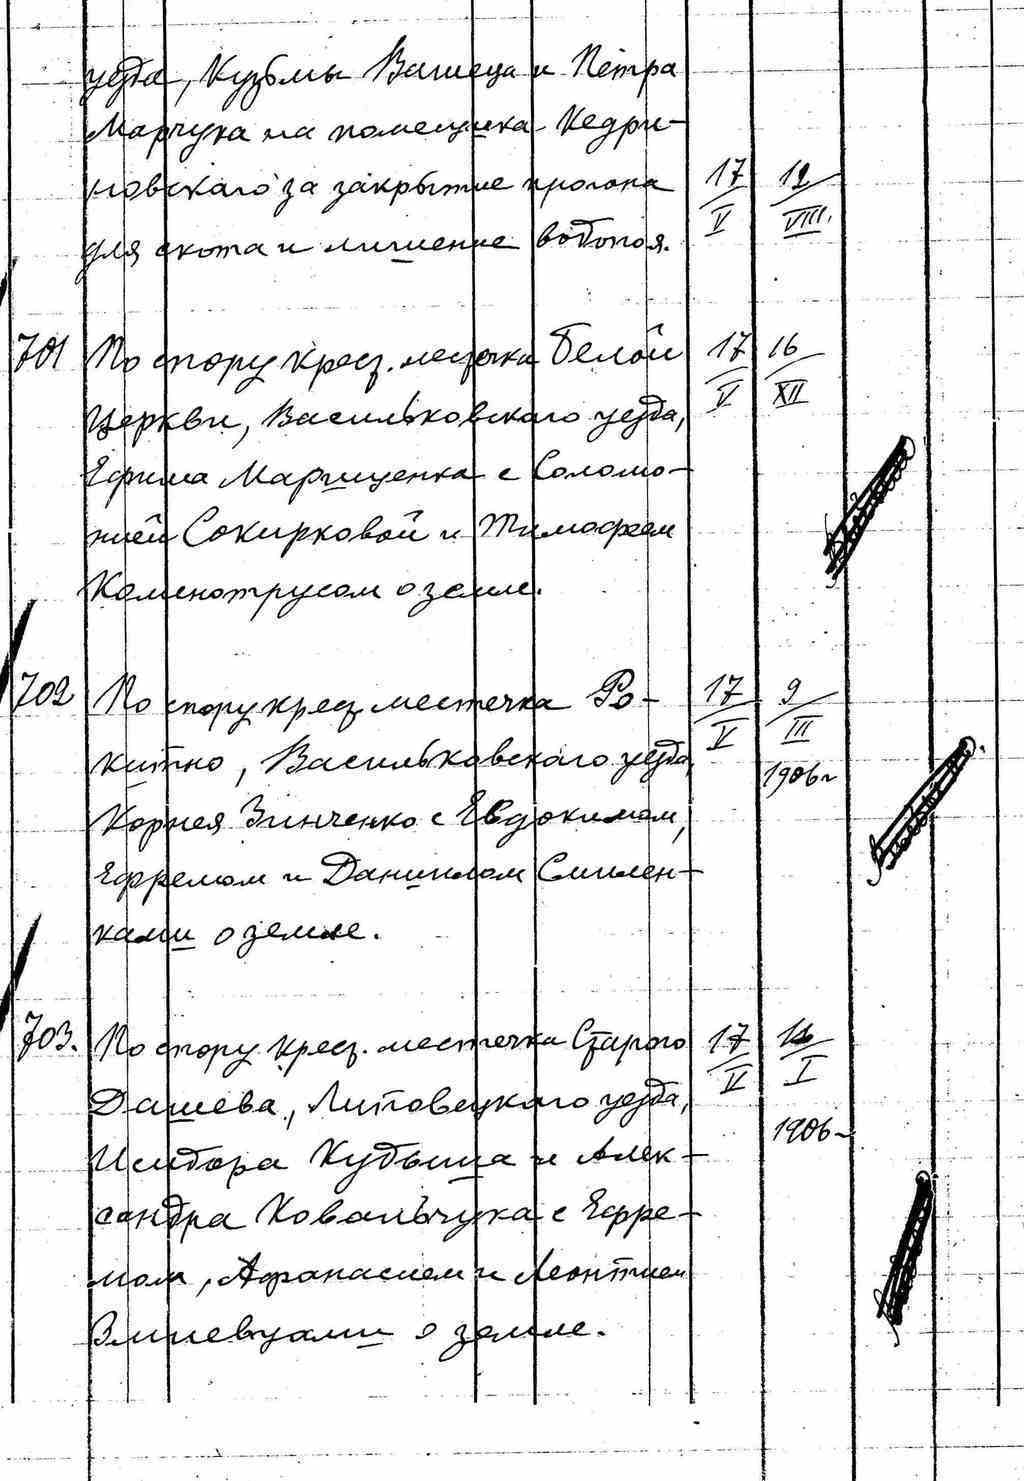 уезда, Кузьмы Вашеца и Петра
Марчука на помещика Кедри-
новского за закрытие прогона 17/V 12/VIII.
для скота и лишение водопоя.
701 По спору крес. местечка Белой 17/V 16/XII
Церкви, Васильковского уезда,
Ефима Марищенка с Соломо-
нией Сокирковой и Тимофеем
Каменотрусом о земле.
702 По спору крес. местечка Ро- 17/V 9/III
китно, Васильковского уезда, 1906г
Корнея Зинченко с Евдокимом,
Ефремом и Даниилом Смилен-
ками о земле.
703. По спору крес. местечка Старого 17/V /I
Дашева, Липовецкого уезда, 1906
Исидора Кубыша и Алек-
сандра Ковальчука с Ефре-
мом, Афанасием и Леонтием
Змиевцами о земле.